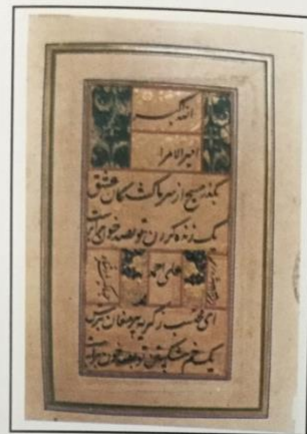 الله اکبر
امیر الامرا
بگذر مسیح از سر ما کشتگان عشق
یک زنده کردن تو بصد خون برابرست
علی احمد
ای محتسب ز گریه پیر مغان بترس
یک خم شکستن تو بصد خون برابرست